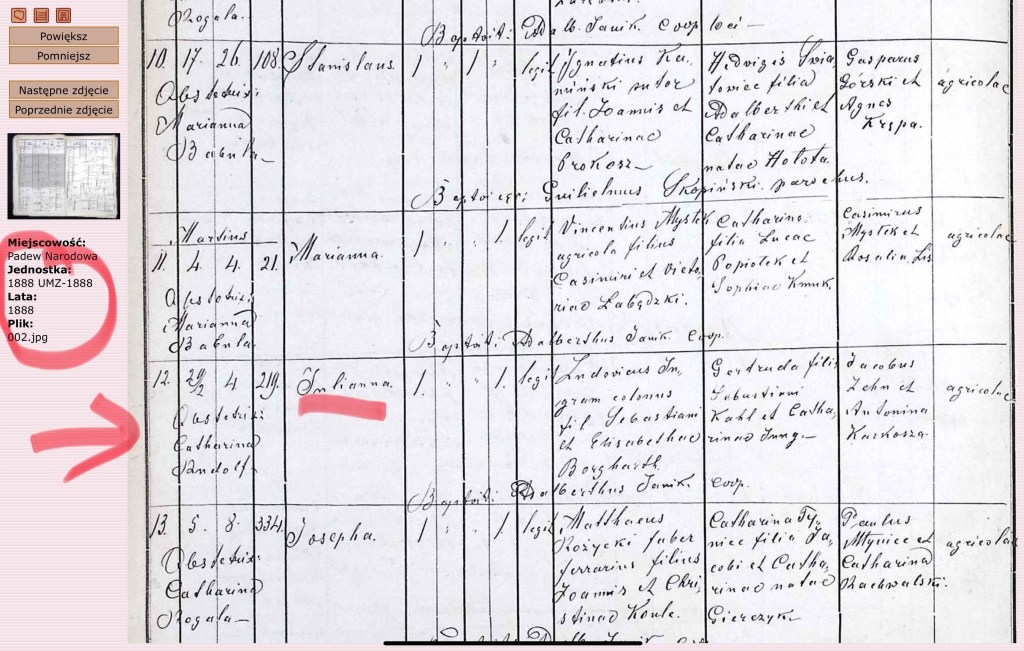 Powiększ
Pomniejsz
Następne zdjęcie
Poprzednie zdjęcie
Miejscowość:
Padew Narodowa
Jednostka:
1888 UMZ-1888
Lata:
1888
Plik:
002.jpg
Rogala.
Baptivit: Adalb. Janik coop loci
10. 17. 26. 108. Stanislaus. 1 " 1 " legit
Obstetrix:
Marianna
Babula
Ignatius
sutor
fil. Joannis et
Catharinae
Prokosz
Hedvigis
filia
Adalberti et
Catharinae
natae Hołota
Gasparus
Górski et
Agnes
Krępa.
agricolae
Guilielmus Skopiński parochus.
Martius
11. 4. 4. 21. Marianna. 1 " " 1. legit
Obstetrix:
Marianna
Babula
Vincentius Mystek
agricola filius
Casimiri et
Łabędzki.
Catharina
filia Lucae
Popiołek et
Sophiae Kmuk.
Casimirus
Mystek et
Rosalia Lis
agricolae
Adalberthus Janik coop.
12. 29/2 4 219. Julianna. 1. " " 1. legit
Obstetrix:
Catharina
Rudolf
Ludovicus In-
gram colonus
fil. Sebastiani
et Elisabethae
Borgharth.
Gertruda filia
Sebastiani
Kahl et Catha-
rinae Jung
Jacobus
Zehn et
Antonina
Karkosza.
agricolae
Adalberthus Janik coop.
13. 5. 8. 334. Josepha. 1 " " 1. legit
Obstetrix:
Catharina
Rogala
Matthaeus
Rożycki faber
ferrarius filius
Joannis et Chri-
stinae
Catharina Ty-
niec filia Ja-
cobi et Catha-
rinae natae
Gierczyk
Paulus
Młyniec et
Catharina
Rachwalski.
agricolae